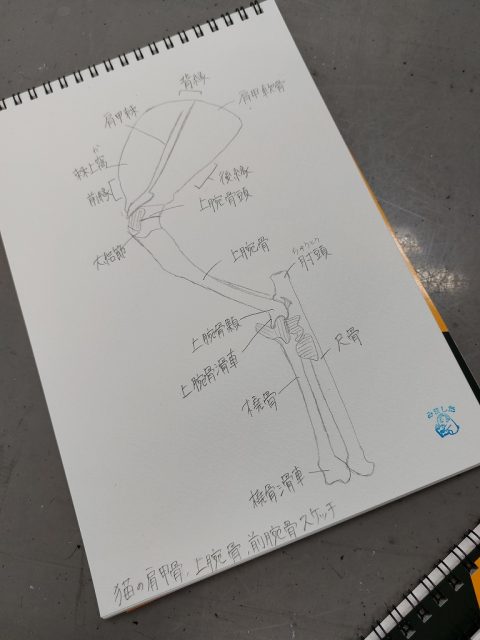 背縁
肩甲棘
肩甲軟骨
棘上窩
前縁
後縁
上腕骨頭
大結節
上腕骨
ちゅうとう
肘頭
上腕骨顆
上腕骨滑車
尺骨
橈骨
橈骨滑車
猫の肩甲骨、上腕骨、前腕骨スケッチ